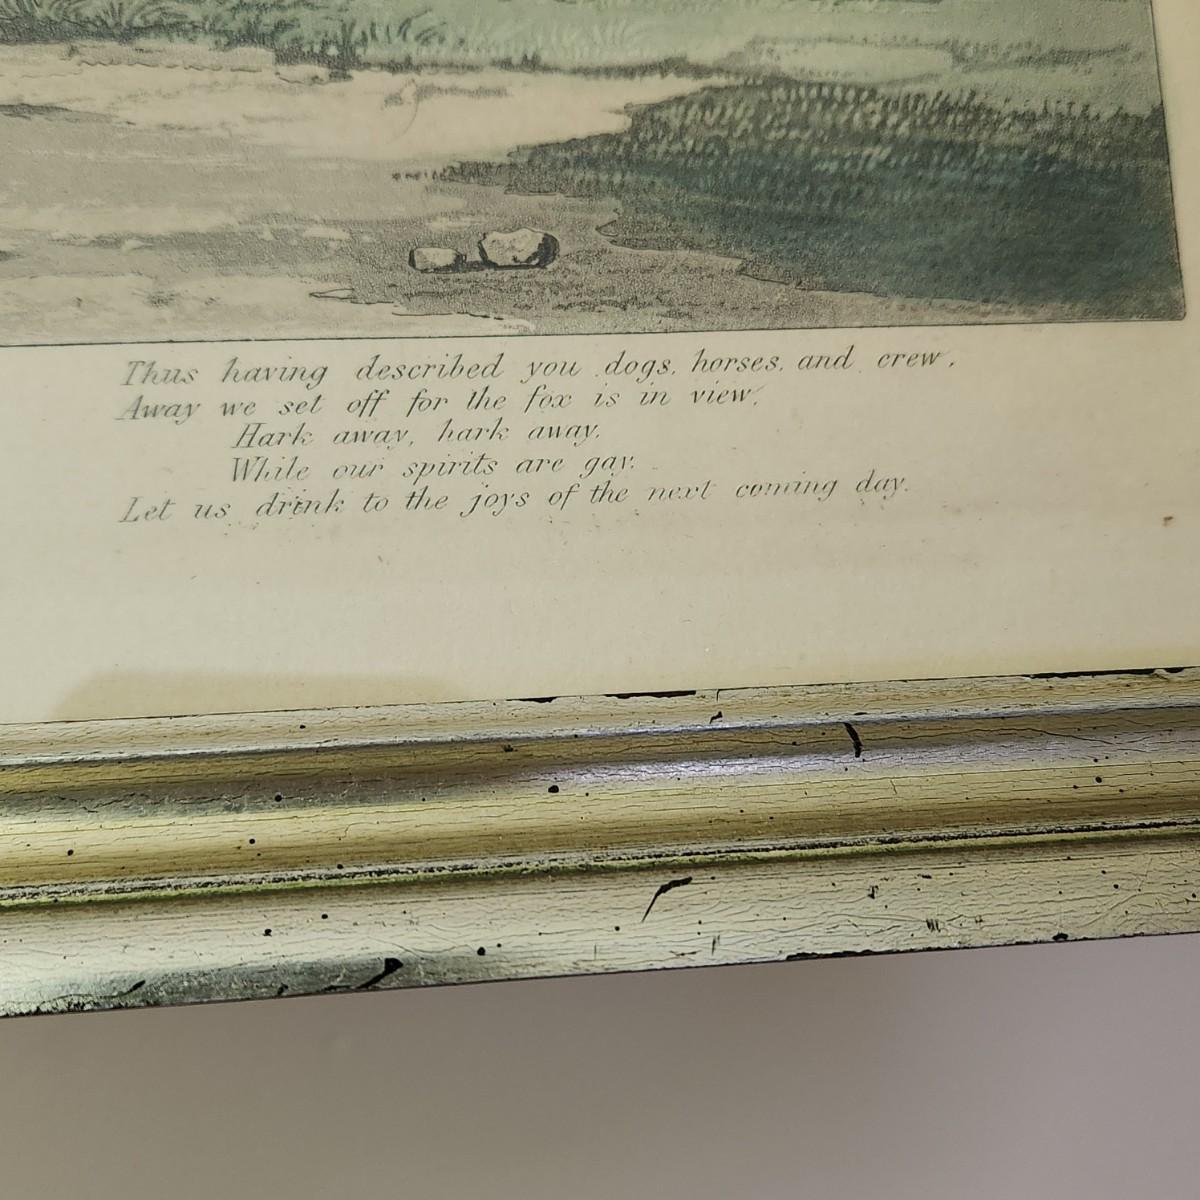 Thus having described you dogs, horses, and crew,
Away we set off for the fox is in view,
Hark away, hark away,
While our spirits are gay,
Let us drink to the joys of the next coming day.